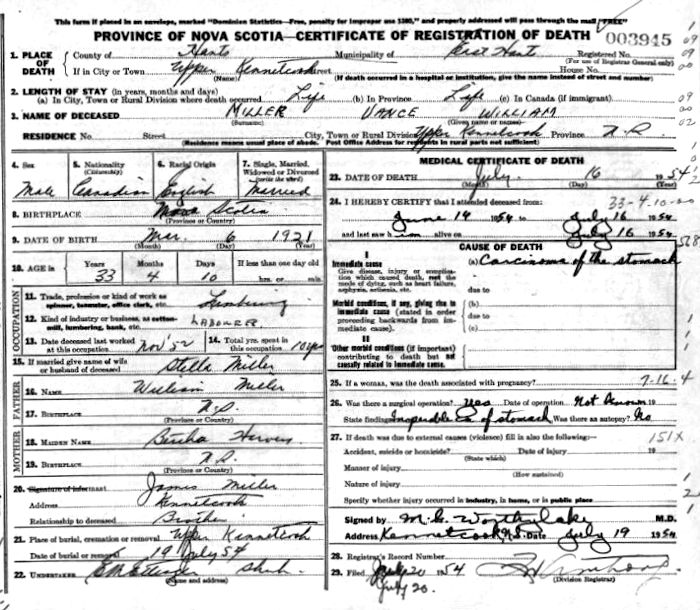 This form if placed in an envelope, marked "Dominion Statistics—Free, penalty for improper use $300," and properly addressed will pass through the mail "FREE"
PROVINCE OF NOVA SCOTIA—CERTIFICATE OF REGISTRATION OF DEATH 003945
1. PLACE OF DEATH County of Hants Municipality of East Hants Registered No.
(For use of Registrar General only)
If in City or Town Upper Kennetcook Street House No.
(Name) (If death occurred in a hospital or institution, give the name instead of street and number)
2. LENGTH OF STAY (in years, months and days)
(a) In City, Town or Rural Division where death occurred Life (b) In Province Life (c) In Canada (if immigrant)
3. NAME OF DECEASED MILLER VANCE WILLIAM
(Surname) (Given name or names)
RESIDENCE No. Street City, Town or Rural Division Upper Kennetcook Province N.S.
(Residence means usual place of abode. Post Office Address for residents in rural parts not sufficient)
4. Sex 5. Nationality (Citizenship) 6. Racial Origin 7. Single, Married, Widowed or Divorced (write the word)
Male Canadian English Married
8. BIRTHPLACE Nova Scotia
(Province or Country)
9. DATE OF BIRTH Mar. 6 1921
(Month) (Day) (Year)
10. AGE in Years Months Days If less than one day old
33 4 10 hrs. or min.
OCCUPATION
11. Trade, profession or kind of work as spinner, teamster, office clerk, etc. Lumbering
12. Kind of industry or business, as cotton-mill, lumbering, bank, etc. LABOURER
13. Date deceased last worked at this occupation Nov 52 14. Total yrs. spent in this occupation 10 yrs
15. If married give name of wife or husband of deceased Stella Miller
FATHER
16. NAME William Miller
17. BIRTHPLACE N.S.
(Province or Country)
MOTHER
18. MAIDEN NAME Bertha Harvey
19. BIRTHPLACE N.S.
(Province or Country)
20. Signature of informant James Miller
Address Kennetcook
Relationship to deceased Brother
21. Place of burial, cremation or removal Upper Kennetcook
Date of burial or removal 19 July 54
22. UNDERTAKER
(Name and address)
MEDICAL CERTIFICATE OF DEATH
23. DATE OF DEATH July 16 1954
(Month) (Day) (Year)
24. I HEREBY CERTIFY that I attended deceased from: 33-4-10-00
June 14 1954 to July 16 1954
and last saw him alive on July 16 1954
CAUSE OF DEATH
I
Immediate cause (a) Carcinoma of the stomach
Give disease, injury or complication which caused death, not the mode of dying, such as heart failure, asphyxia, asthenia, etc. due to
Morbid conditions, if any, giving rise to immediate cause (stated in order proceeding backwards from immediate cause). (b)
due to
(c)
II
Other morbid conditions (if important) contributing to death but not causally related to immediate cause.
25. If a woman, was the death associated with pregnancy? 7-16-4
26. Was there a surgical operation? Yes Date of operation Not known 19
State findings Inoperable ca of stomach Was there an autopsy? No
27. If death was due to external causes (violence) fill in also the following:— 151X
Accident, suicide or homicide? Date of injury 19
(State which)
Manner of injury
(How sustained)
Nature of injury
Specify whether injury occurred in industry, in home, or in public place
Signed by M.D.
Address Kennetcook N.S. Date July 19 1954
28. Registrar's Record Number
29. Filed July 20 1954
(Division Registrar)
July 20.